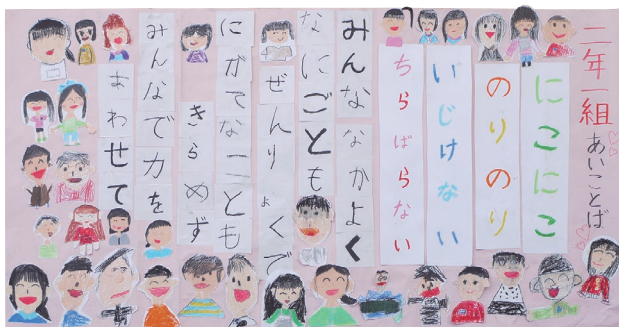 二年一組 あいことば
にこにこ
のりのり
いじけない
ちらばらない
みんな なかよく
なにごとも
ぜんりょくで
にがてなことも
きらめず
みんなで力を
あわせて